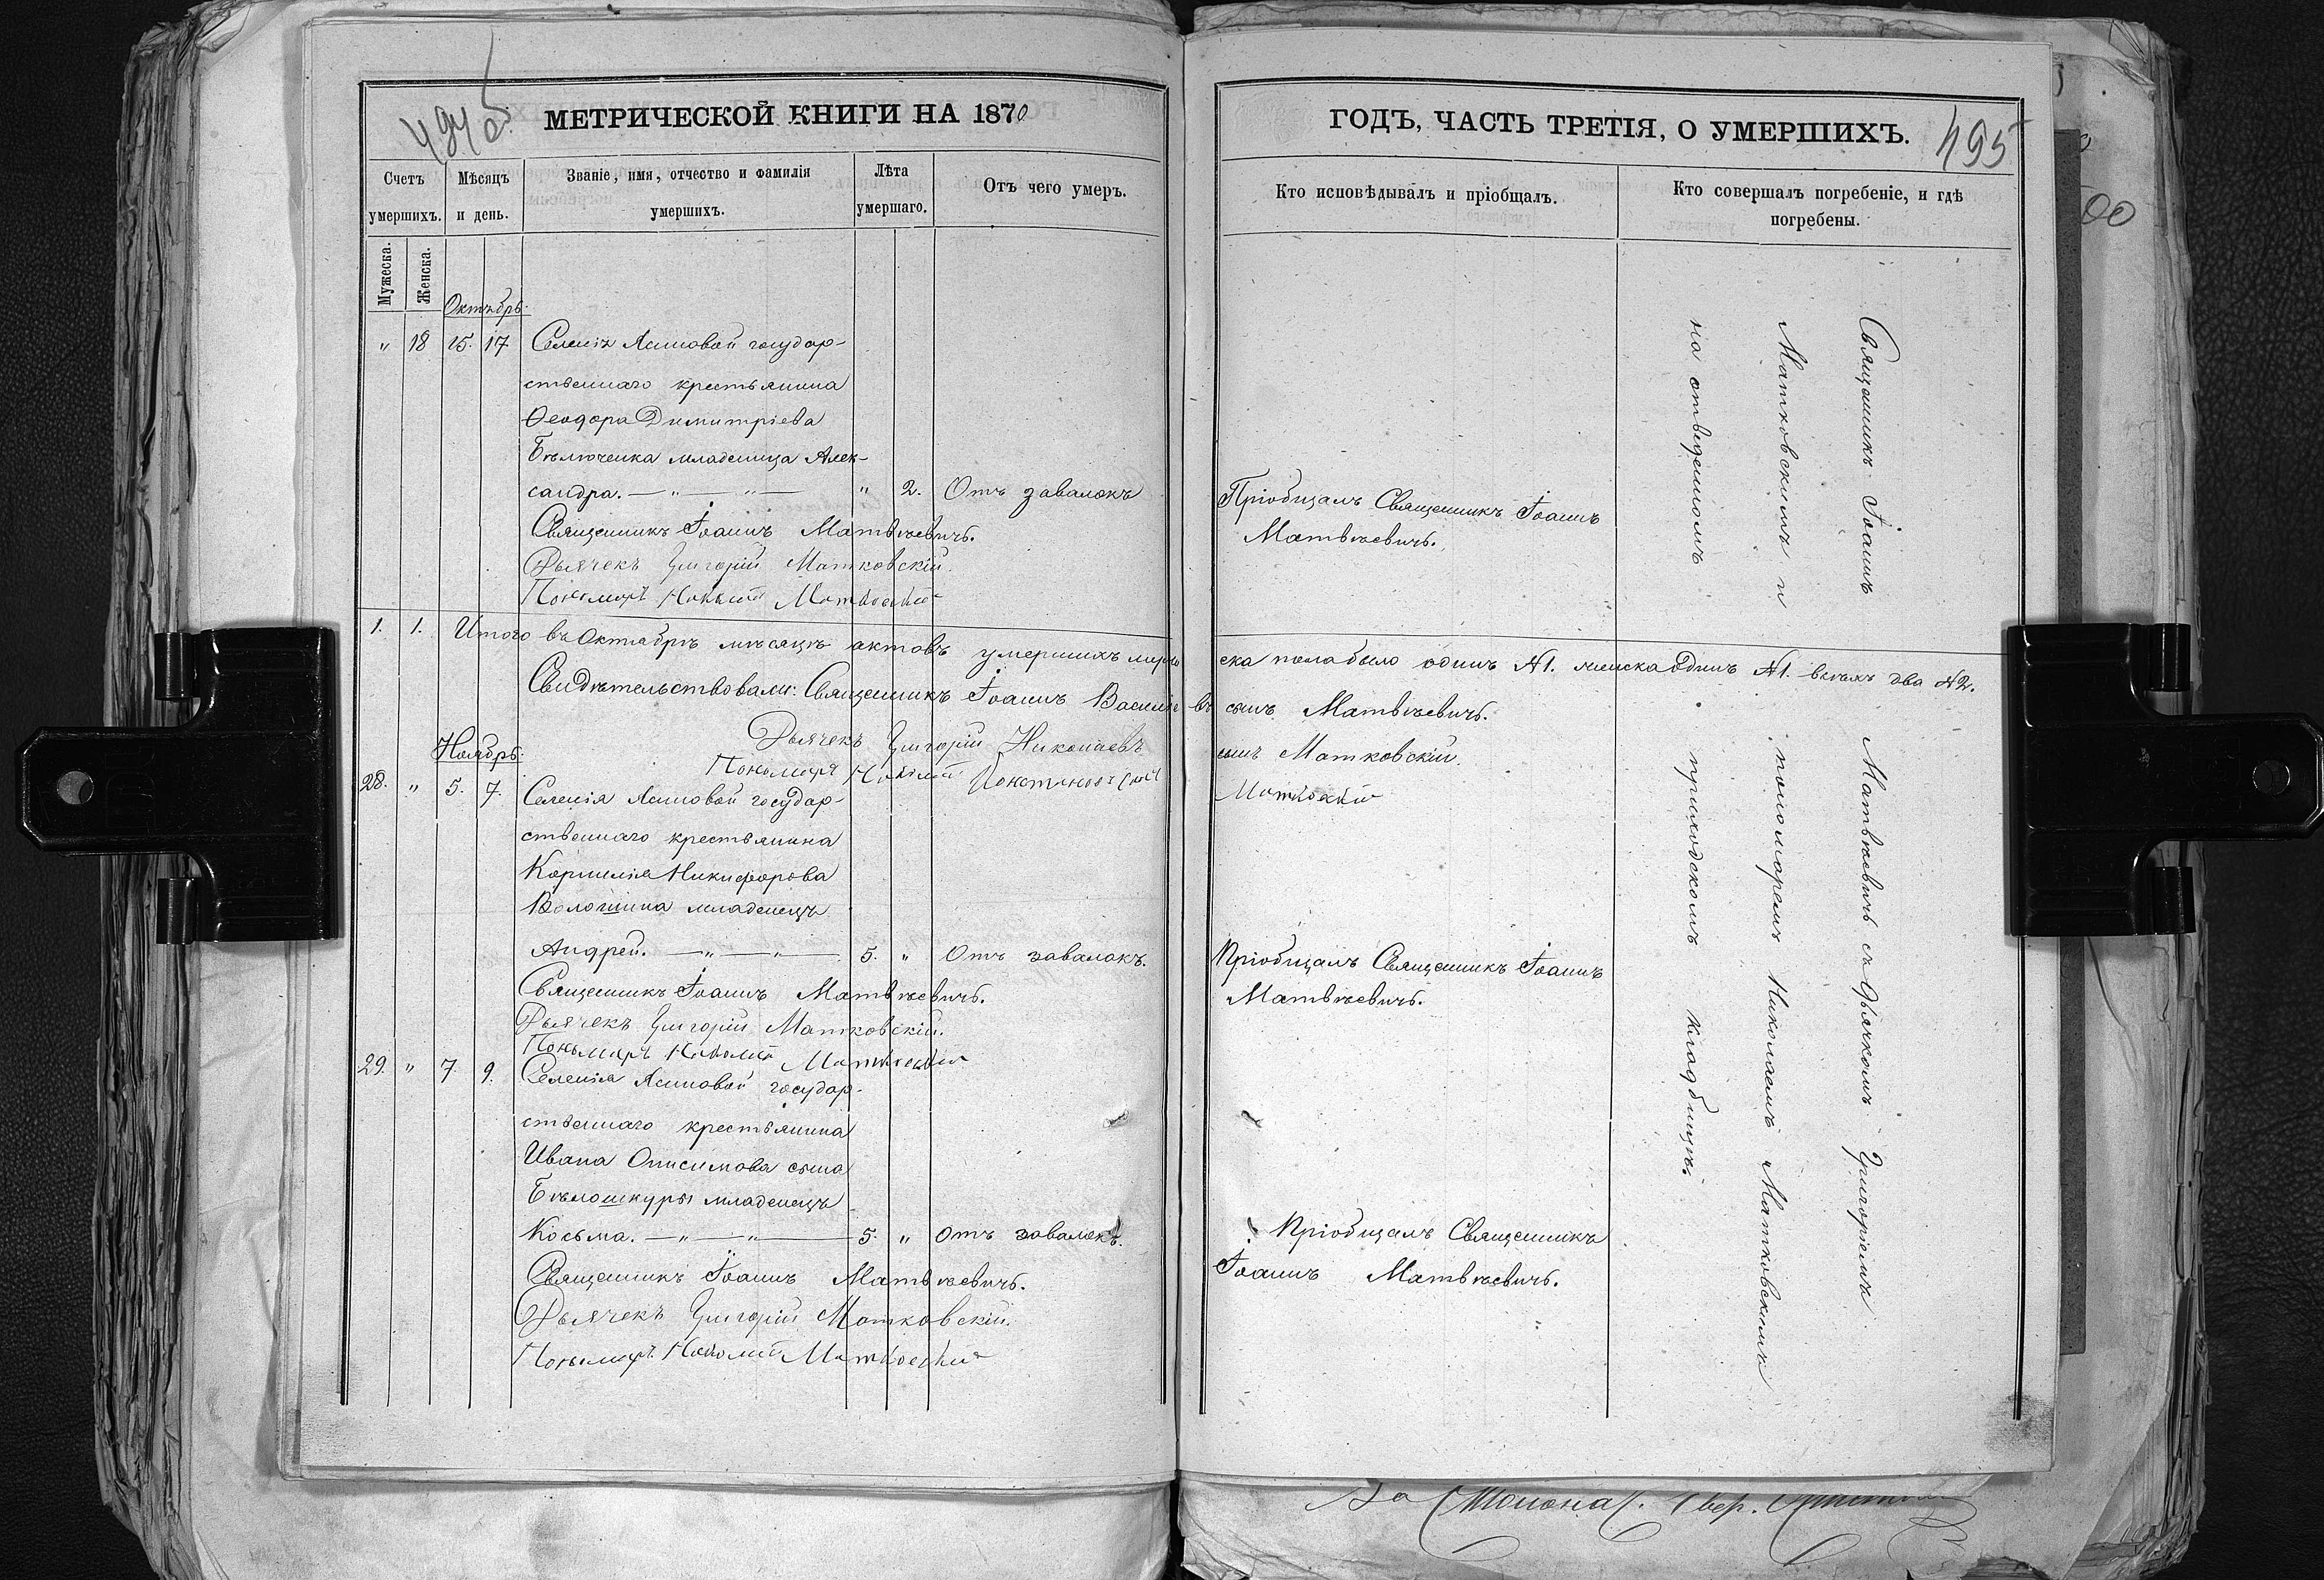 494 об.
МЕТРИЧЕСКОЙ КНИГИ НА 1870
Счетъ умершихъ.
Мѣсяцъ и день.
Званіе, имя, отчество и фамилія умершихъ.
Лѣта умершаго.
Отъ чего умеръ.
Мужеска.
Женска.
Октябрь.
" 18 15. 17 Селенія Ясиновой государ-
ственнаго крестьянина
Ѳеодора Димитріева
Бѣлюченка младеница Алек-
сандра. — " — " — " 2. Отъ завалокъ
Священникъ Іоаннъ Матвѣевичъ.
Дьячекъ Григорій Матковскій.
Пономарь Матковскій
1. 1. Итого въ Октябрѣ мѣсяцѣ актовъ умершихъ муже
Свидѣтельствовали: Священникъ Іоаннъ Василіевъ
Дьячекъ Григорій Николаевъ
Пономарь
Ноябрь.
28. " 5. 7. Селенія Ясиновой государ-
ственнаго крестьянина
Корнилія Никифорова
Волошина младенецъ
Андрей. — " — " — 5. " Отъ завалокъ.
Священникъ Іоаннъ Матвѣевичъ.
Дьячекъ Григорій Матковскій.
Пономарь Матковскій
29. " 7. 9. Селенія Ясиновой государ-
ственнаго крестьянина
Ивана Онисимова сына
Бѣлошкуры младенецъ
Косьма. — " — " — 5. " Отъ завалокъ.
Священникъ Іоаннъ Матвѣевичъ.
Дьячекъ Григорій Матковскій.
Пономарь Матковскій
ГОДЪ, ЧАСТЬ ТРЕТІЯ, О УМЕРШИХЪ.
495
Кто исповѣдывалъ и пріобщалъ.
Кто совершалъ погребеніе, и гдѣ
погребены.
Пріобщалъ Священникъ Іоаннъ
Матвѣевичъ.
ска пола было одинъ №1. женска одинъ №1. всѣхъ два №2.
сынъ Матвѣевичъ.
сынъ Матковскій.
Матковскій
Пріобщалъ Священникъ Іоаннъ
Матвѣевичъ.
Пріобщалъ Священникъ
Іоаннъ Матвѣевичъ.
Священникъ Іоаннъ Матвѣевичъ съ дьячкомъ Григоріемъ
Матковскимъ и пономаремъ Николаемъ Матковскимъ
на отведенномъ приходскомъ кладбищѣ.
00